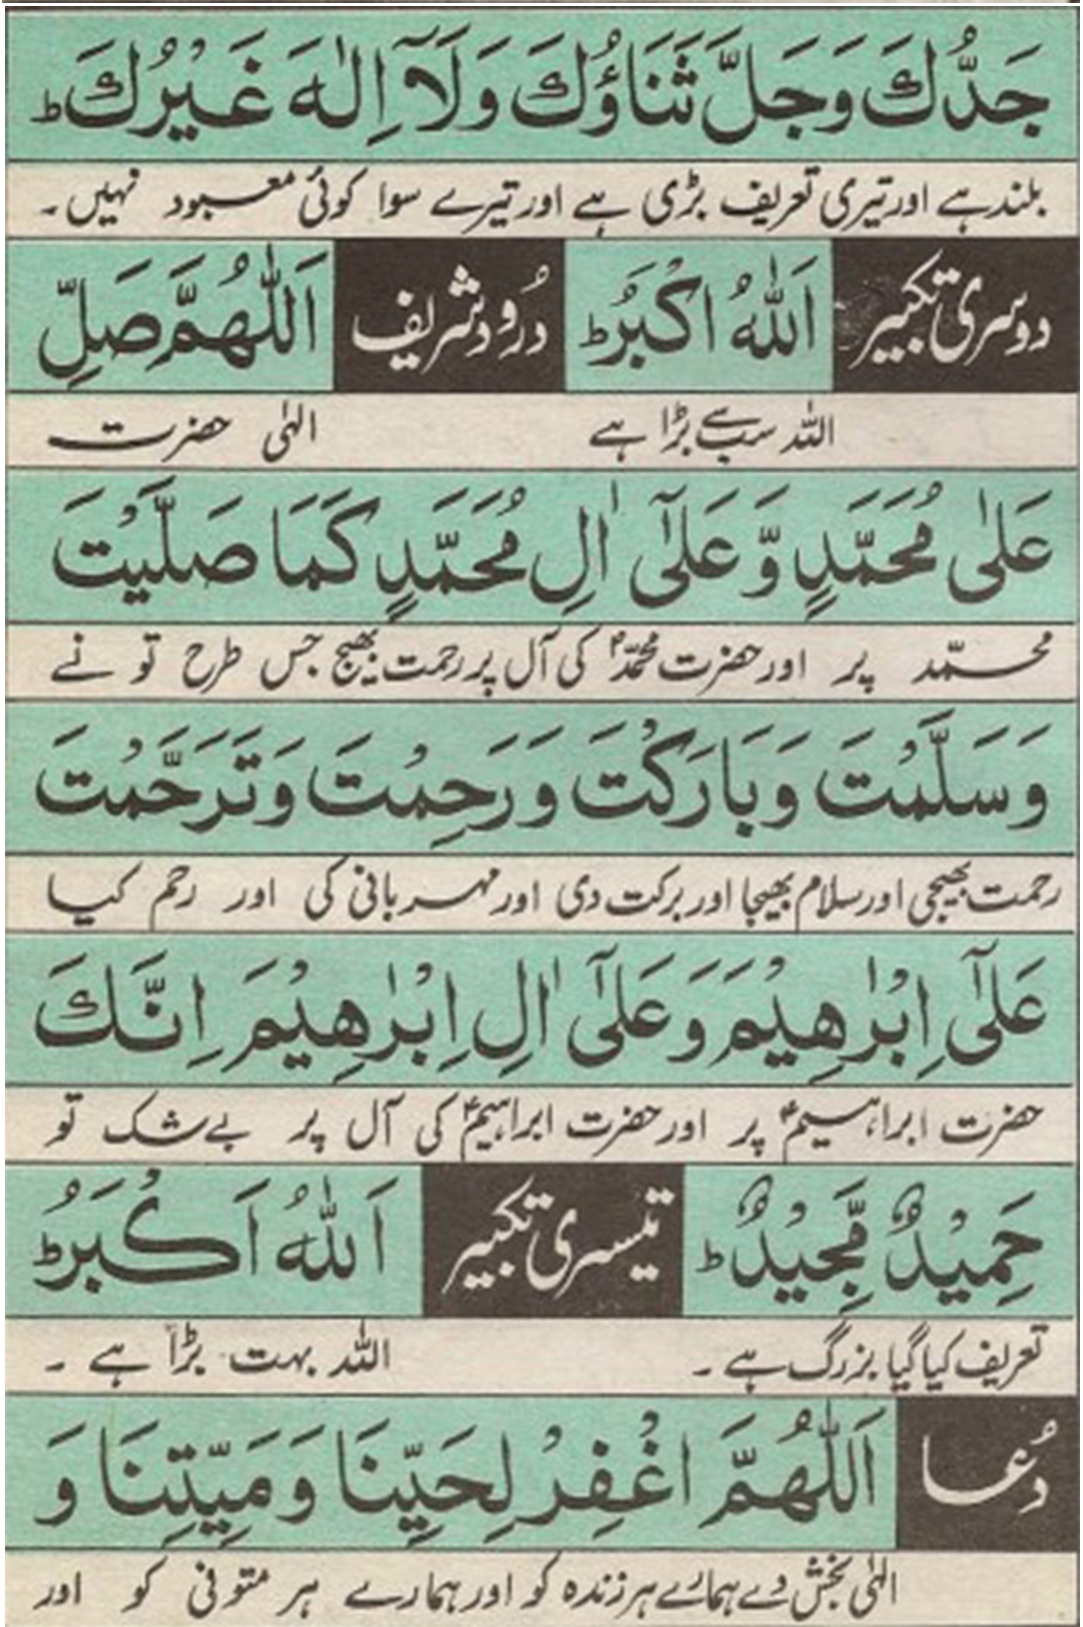 جَدُّكَ وَجَلَّ ثَنَاؤُكَ وَلَآ اِلٰهَ غَيْرُكَ ؕ
بلند ہے اور تیری تعریف بڑی ہے اور تیرے سوا کوئی معبود نہیں۔
دوسری تکبیر اَللّٰهُ اَكْبَرُ ؕ درود شریف اَللّٰهُمَّ صَلِّ
اللہ سب سے بڑا ہے الٰہی حضرت
عَلٰى مُحَمَّدٍ وَّعَلٰٓى اٰلِ مُحَمَّدٍ كَمَا صَلَّيْتَ
محمّد پر اور حضرت محمّدؐ کی آل پر رحمت بھیج جس طرح تو نے
وَسَلَّمْتَ وَبَارَكْتَ وَرَحِمْتَ وَتَرَحَّمْتَ
رحمت بھیجی اور سلام بھیجا اور برکت دی اور مہربانی کی اور رحم کیا
عَلٰٓى اِبْرٰهِيْمَ وَعَلٰٓى اٰلِ اِبْرٰهِيْمَ اِنَّكَ
حضرت ابراہیمؑ پر اور حضرت ابراہیمؑ کی آل پر بے شک تو
حَمِيْدٌ مَّجِيْدٌ ؕ تیسری تکبیر اَللّٰهُ اَكْبَرُ ؕ
تعریف کیا گیا بزرگ ہے۔ اللہ بہت بڑا ہے۔
دُعا اَللّٰهُمَّ اغْفِرْ لِحَيِّنَا وَمَيِّتِنَا وَ
الٰہی بخش دے ہمارے ہر زندہ کو اور ہمارے ہر متوفی کو اور